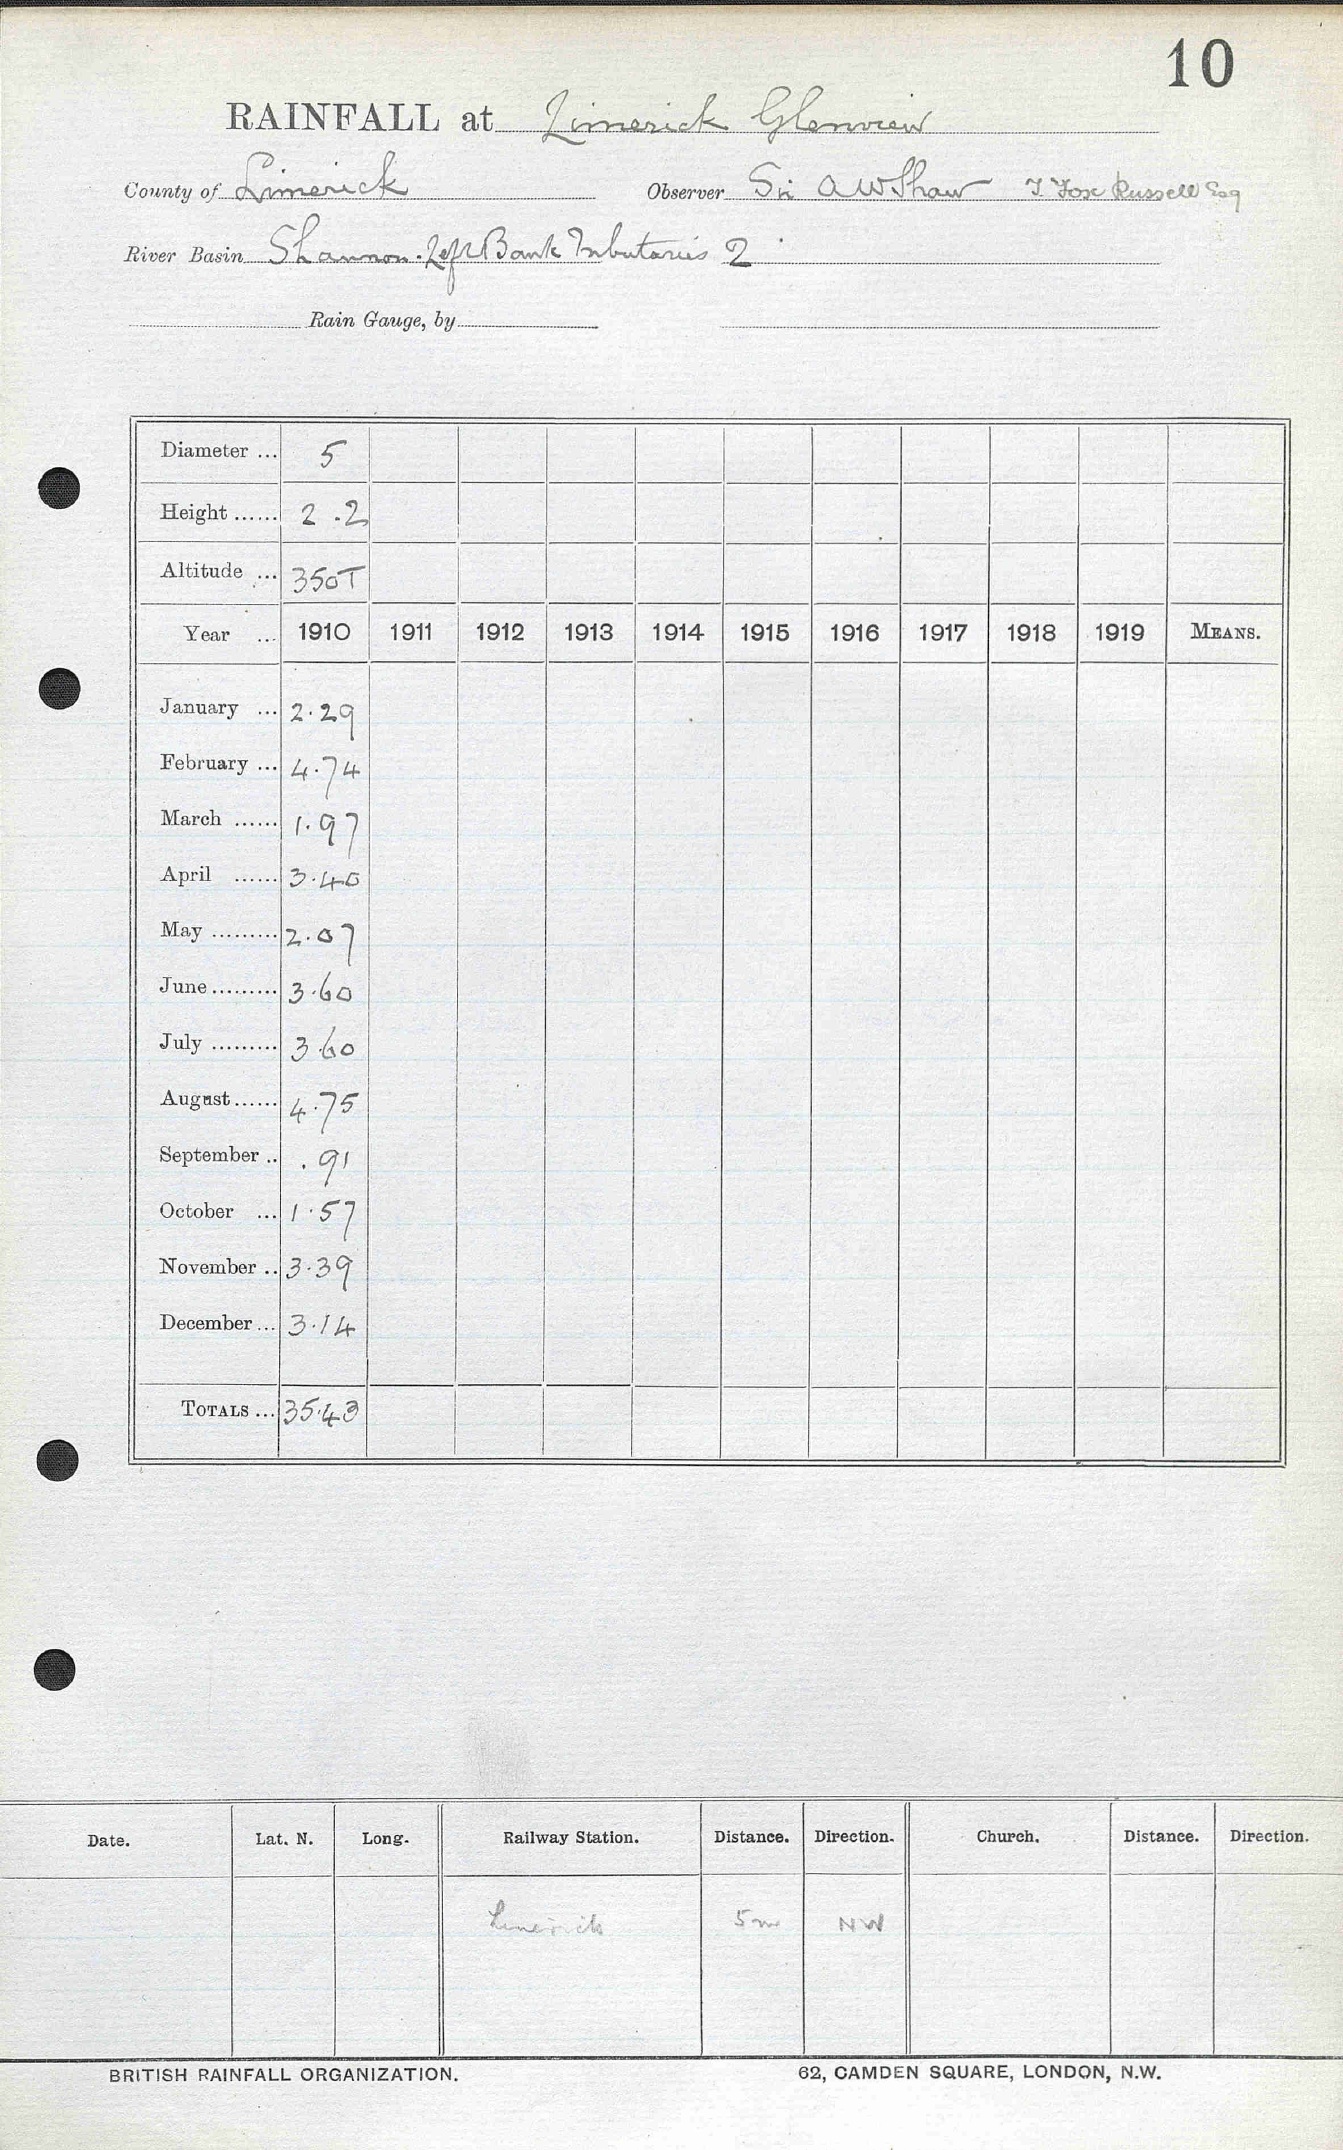 10
RAINFALL at Limerick Glenview
County of Limerick Observer Sir A W Shaw T. Fox Russell Esq
River Basin Shannon. Left Bank Tributaries 2
Rain Gauge, by
Diameter ... 5
Height ...... 2 .2
Altitude ... 350T
Year ... 1910 1911 1912 1913 1914 1915 1916 1917 1918 1919 MEANS.
January ... 2.29
February ... 4.74
March ...... 1.97
April ...... 3.40
May ......... 2.07
June ......... 3.60
July ......... 3.60
August ...... 4.75
September .. .91
October ... 1.57
November .. 3.39
December ... 3.14
TOTALS ... 35.43
Date. Lat. N. Long. Railway Station. Distance. Direction. Church. Distance. Direction.
Limerick 5m NW
BRITISH RAINFALL ORGANIZATION. 62, CAMDEN SQUARE, LONDON, N.W.